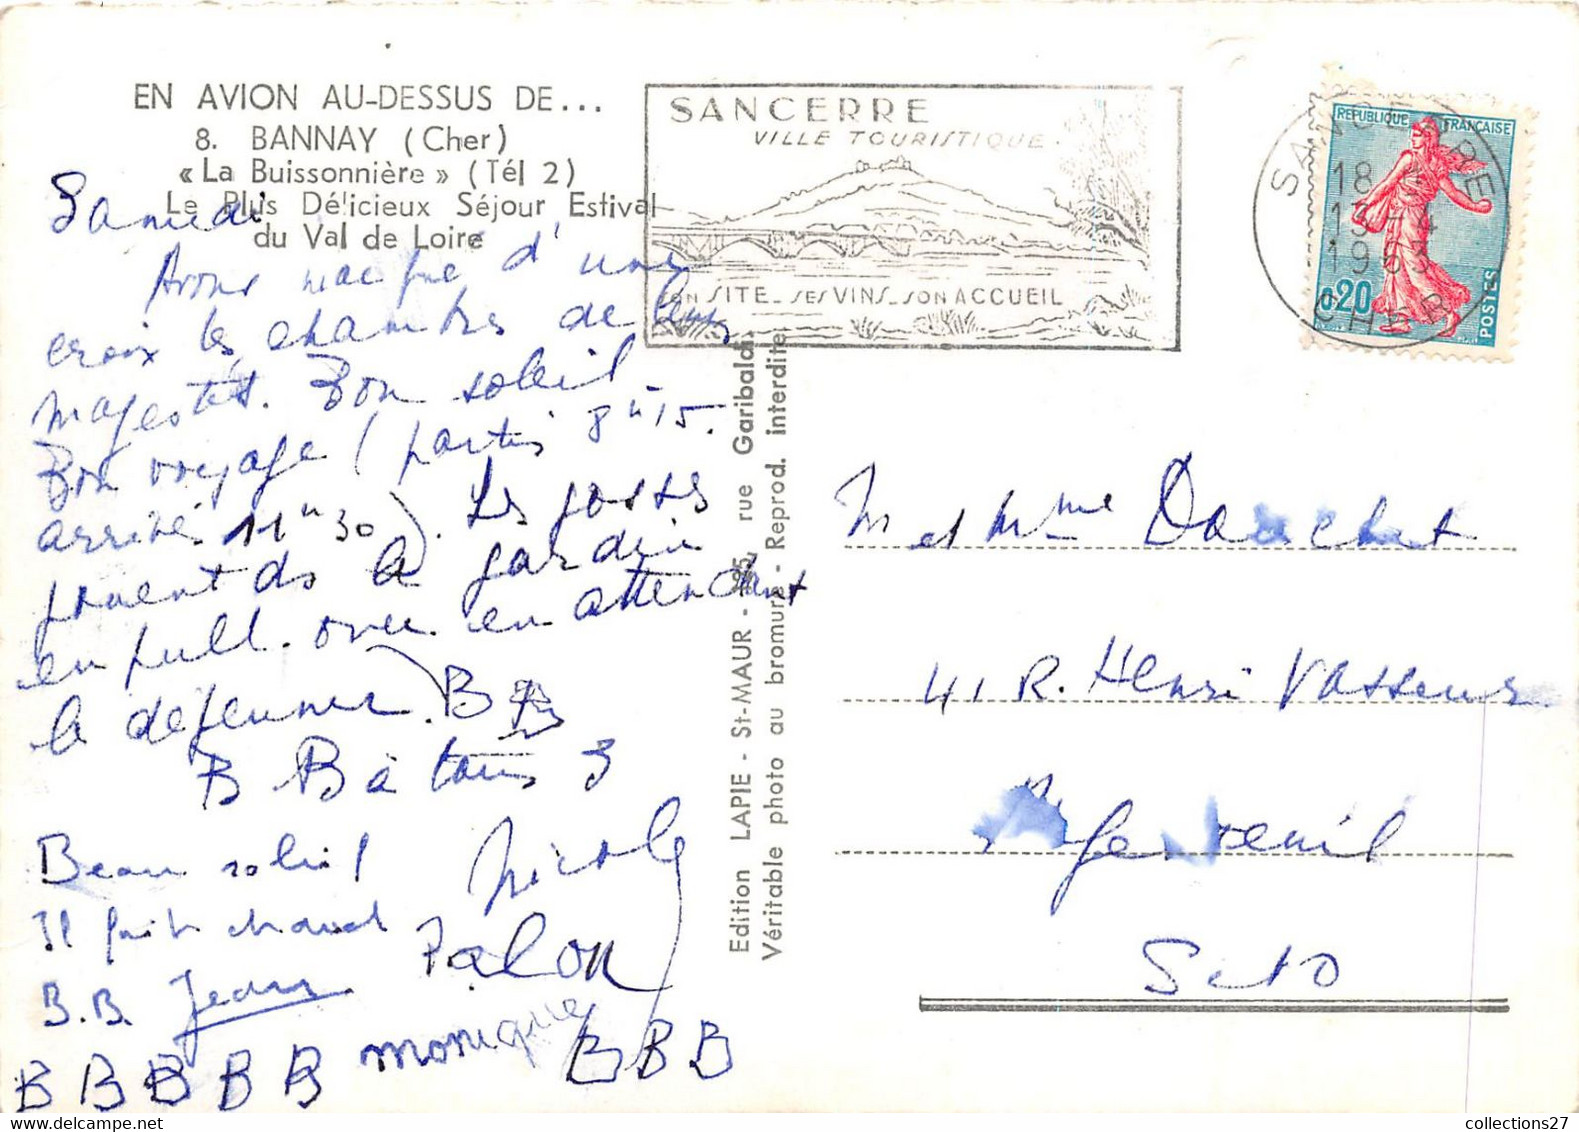 EN AVION AU-DESSUS DE...
8. BANNAY (Cher)
« La Buissonnière » (Tél 2)
Le Plus Délicieux Séjour Estival
du Val de Loire
SANCERRE
VILLE TOURISTIQUE
SON SITE_ SES VINS_ SON ACCUEIL
REPUBLIQUE FRANÇAISE
0,20
POSTES
SANCERRE
18
13-4
1963
CHER
Samedi
Avons marqué d'une
croix les chambres de leurs
majestés. Bon soleil
Bon voyage (partis 8h15.
arrivés 11h30). Les gosses
prennent le jardin
en pull-over en attendant
le déjeuner. B
B B à tous 3
Beau soleil
Il fait chaud
B.B. Jean
Nicole
Monique
B B B B B
B B B
Edition LAPIE - St-MAUR - rue Garibaldi
Véritable photo au bromure - Reprod. interdite
M et Mme Douchet
41 R. Henri Vasseur
Argenteuil
S et O
collections27